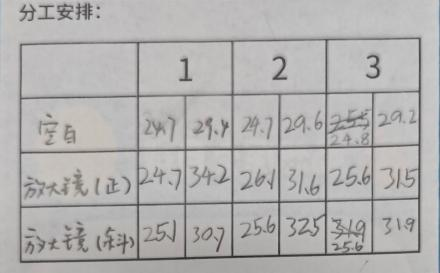 分工安排:
1 2 3
空白 24.7 29.4 24.7 29.6 25.5 24.8 29.2
放大镜(正) 24.7 34.2 26.1 31.6 25.6 31.5
放大镜(斜) 25.1 30.7 25.6 32.5 31.9 25.6 31.9